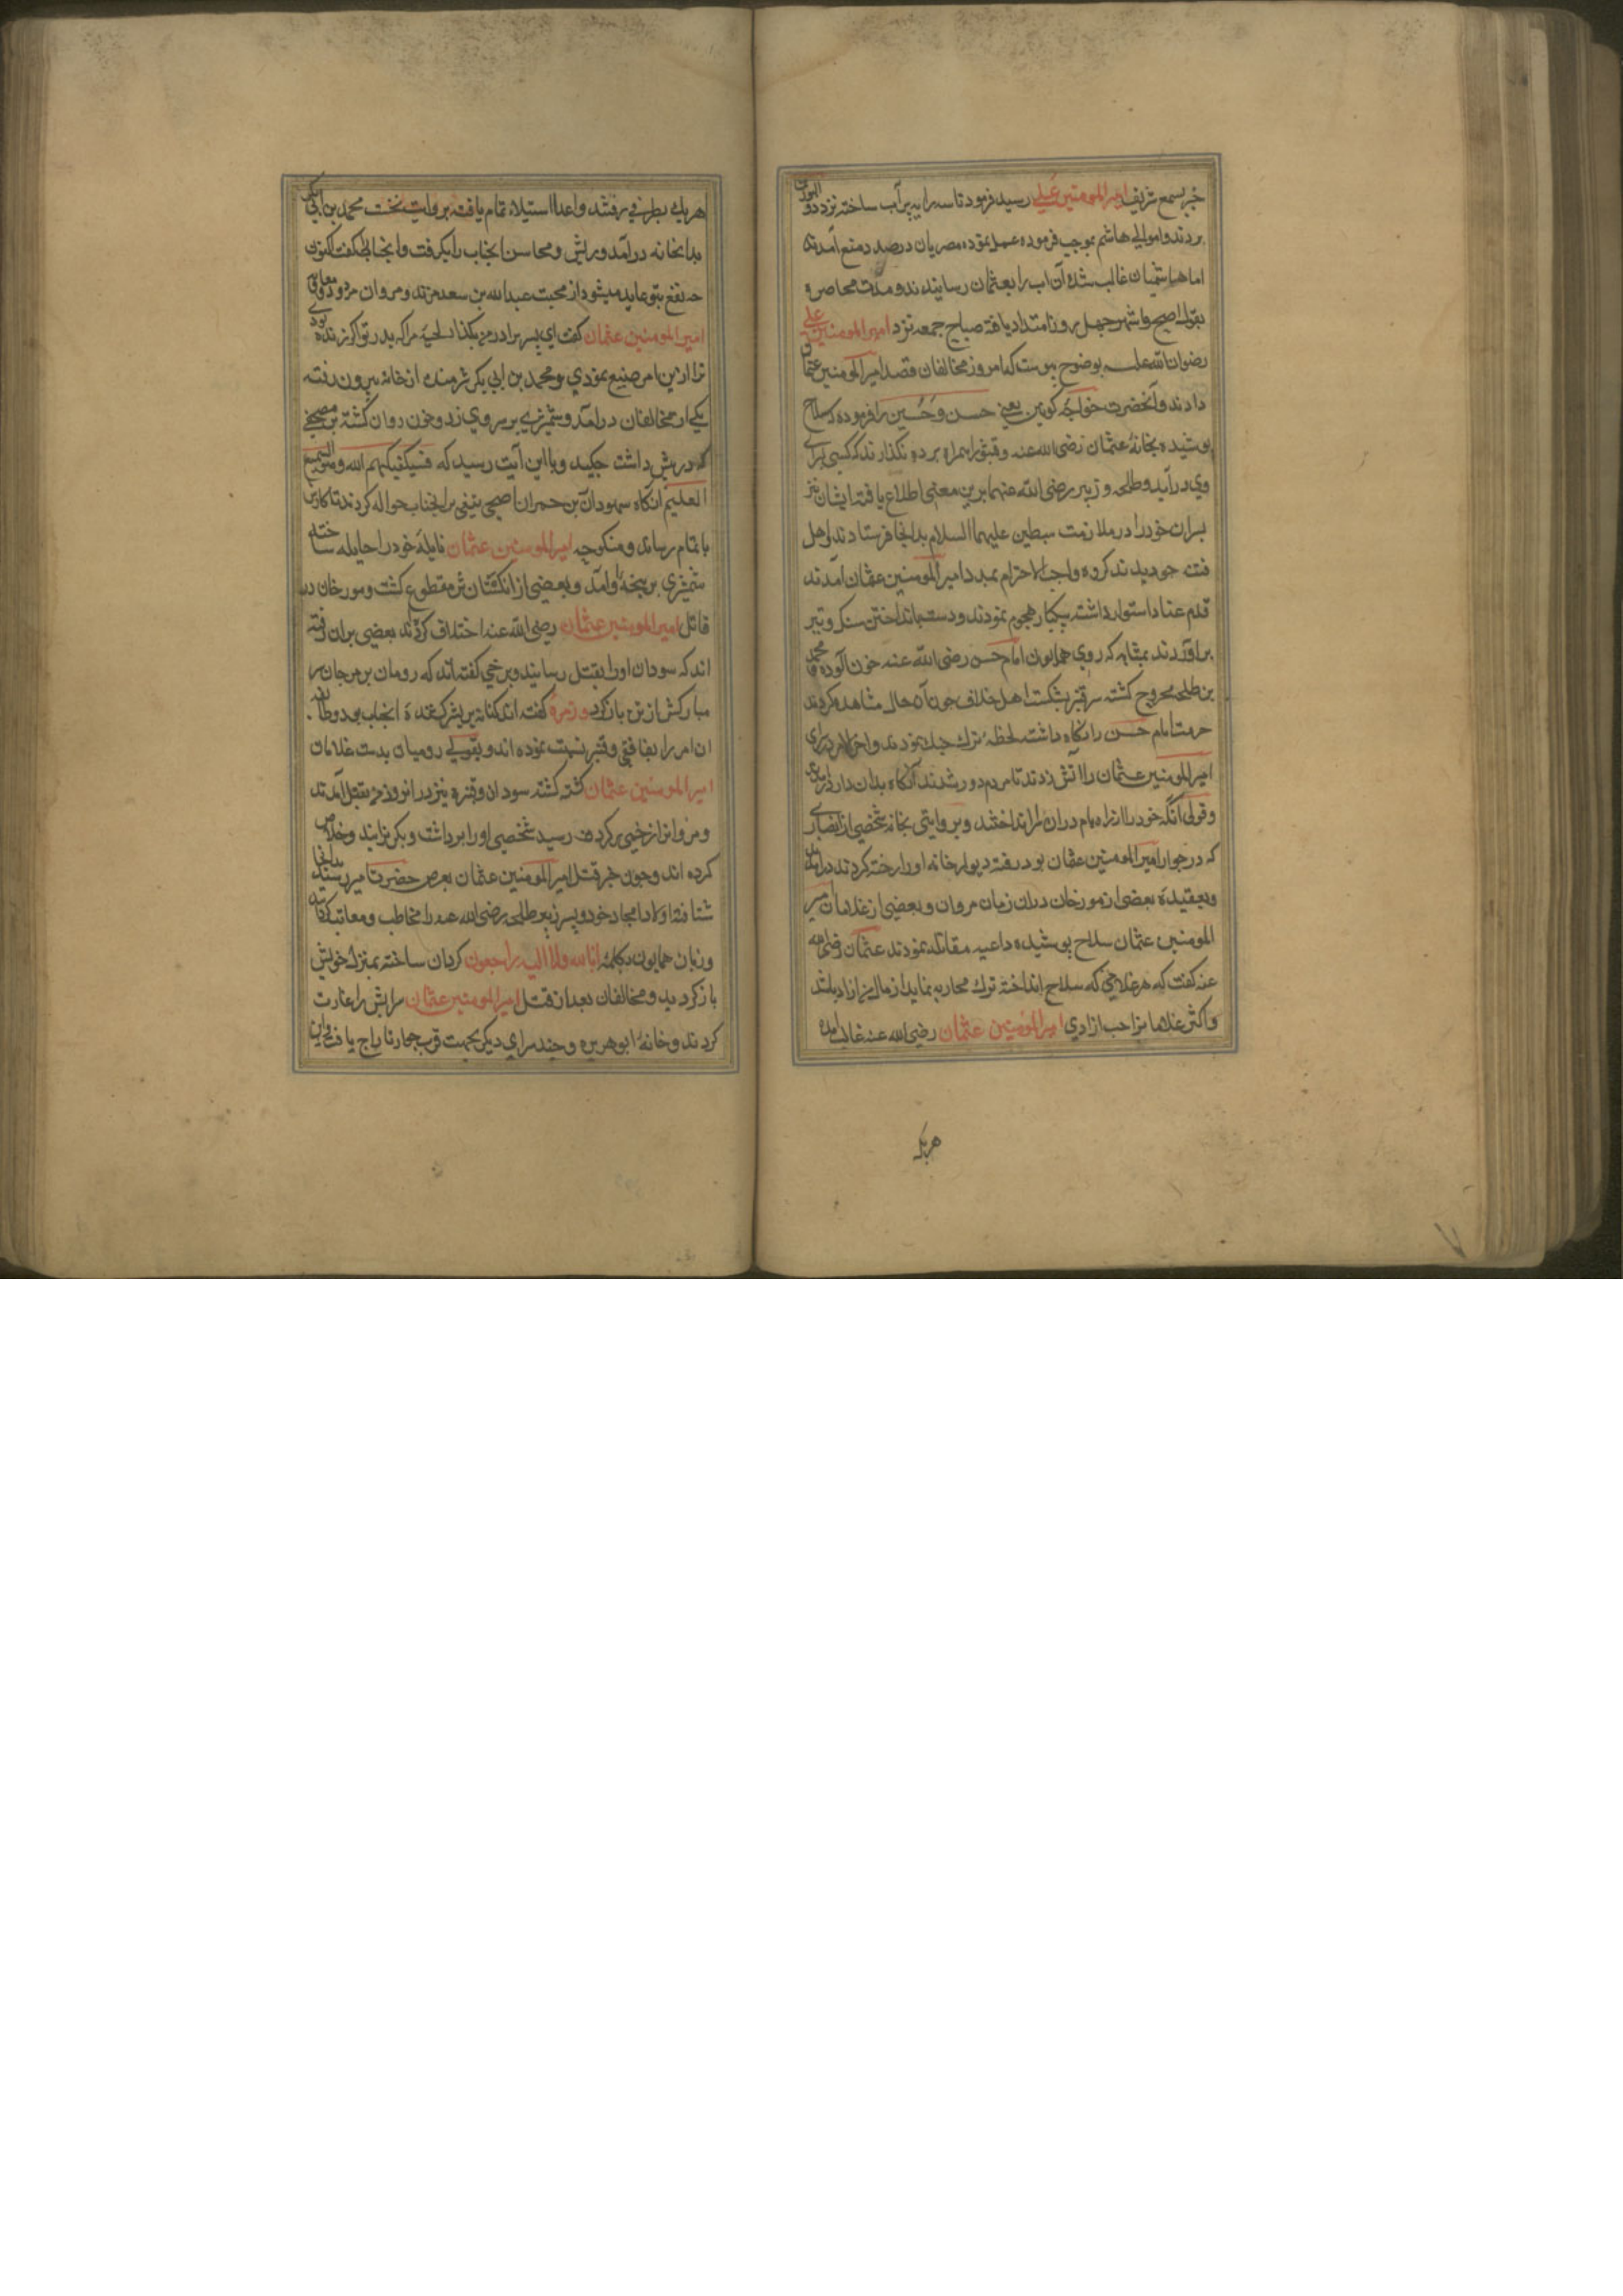 خبر بسمع شریف امیر المومنین علی رسید فرمود تا سه راویه پر آب ساخته نزد ذو النورین
بردند و موالی هاشم بموجب فرموده عمل نموده مصریان درصدد منع آمدند
اما هاشمیان غالب شده آن اب را بعثمان رسانیدند و مدت محاصره
بقول اصح و اشهر چهل روز امتداد یافته صباح جمعه نزد امیر المومنین علی
رضوان الله علیه بوضوح پیوست که امروز مخالفان قصد امیر المومنین عثمان
دارند و آنحضرت خواجه کونین یعنی حسن و حسین را فرموده که سلاح
پوشیده بخانهٔ عثمان رضی الله عنه و قنبر را همراه برده نگذارند که کسی بسرای
وی درآید و طلحه و زبیر رضی الله عنهما برین معنی اطلاع یافته ایشان نیز
پسران خود را در ملازمت سبطین علیهما السلام بدانجا فرستادند و اهل
فتنه چو دیدند که گروه واجب الاحترام بمدد امیر المومنین عثمان آمدند
قدم عناد استوار داشته بیکبار هجوم نمودند و دست بانداختن سنک و تیر
براوردند بمثابه که روی همایون امام حسن رضی الله عنه خون آلوده و محمد
بن طلحه مجروح کشته سر قنبر بشکست اهل خلاف چون آن حال مشاهده کردند
حرمت امام حسن را نکاه داشته لحظهٔ ترک جنک نمودند و اخر الامر در سرای
امیر المومنین عثمان را آتش زدند تا مردم دور شدند آنکاه بدان دار درآمدند
و قولی آنکه خود را از راه بام دران سرا انداختند و بروایتی بخانهٔ شخصی از انصاری
که در جوار امیر المومنین عثمان بود رفته دیوار خانه او را رخنه کردند درآمدند
و بعقیده بعضی از مورخان دران زمان مروان و بعضی از غلامان امیر
المومنین عثمان سلاح پوشیده داعیه مقاتله نمودند عثمان رضی الله
عنه کفت که هر غلامی که سلاح انداخته ترک محاربه نماید از مال من ازاد باشد
و اکثر غلامانرا حب ازادی امیر المومنین عثمان رضی الله عنه غالب امده
هر یک
هر یک بطرفی رفتند و اعدا استیلاء تمام یافته بروایت نخست محمد بن ابی بکر
بدانخانه درآمد و ریش و محاسن انجناب را بکرفت و انجناب کفت اکنون
چه نفع بتو عاید میشود از محبت عبدالله بن سعد مرتد و مروان مردود و معاویه
امیر المومنین عثمان کفت ای پسر برادر من بکذار لحیهٔ مرا که پدر تو اکر زنده بودی
ترا ازین امر صنیع نمودی و محمد بن ابی بکر شرمنده از خانه بیرون رفته
یکی از مخالفان درآمد و شمشیری بر سر وی زد و خون روان کشته بر مصحفی
که در پیش داشت چکید و باین آیت رسید که فسیکفیکهم الله و هو السمیع
العلیم انکاه سودان بن حمران اصبحی تیغی برانجناب حواله کردند تا کارش
باتمام رساند و منکوحه امیر المومنین عثمان نایله خود را حایله ساخته
شمشیری بر پنجهٔ او آمد و بعضی از انکشتانش مقطوع کشت و مورخان در
قاتل امیر المومنین عثمان رضی الله عنه اختلاف کرده‌اند بعضی بران رفته
اند که سودان او را بقتل رسانید و برخی کفته‌اند که رومان بن مرجان سر
مبارکش از تن باز کرد و زمرهٔ کفته اند کنانه بن بشر کشندهٔ انجناب بود و طایفه
ان امر را بغافقی و قتیر نسبت نموده اند و بقولی رومیان بدست غلامان
امیر المومنین عثمان کشته کشته سودان و قتیره نیز در انروز بقتل آمدند
و مروانرا زخمی بر کردن رسید شخصی او را برداشت و خلاص
کرده اند و چون خبر قتل امیر المومنین عثمان بعرض حضرت امیر رسید بدانجا
شتافته اولاد امجاد خود و پسر زبیر و طلحه رضی الله عنه را مخاطب و معاتب کردانیده
و زبان همایون بکلمهٔ انا لله و انا الیه راجعون کردان ساخته بمنزل خویش
باز کردید و مخالفان بعد از قتل امیر المومنین عثمان سرایش را غارت
کردند و خانهٔ ابوهریره و چند سرای دیکر بجهت قرب جوار تاراج یافت و این